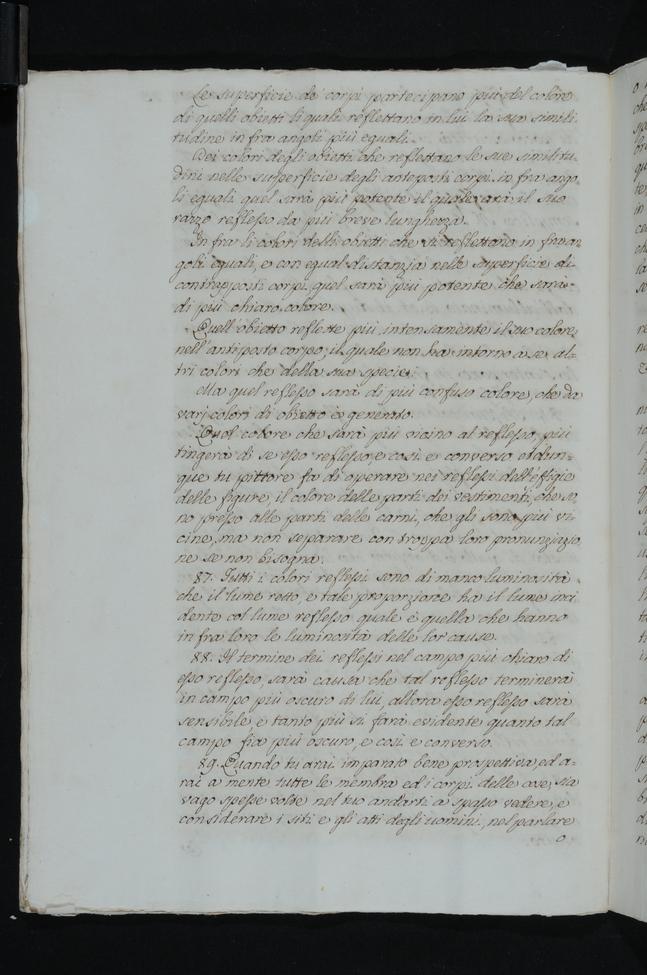 Le superficie de' corpi partecipano più del colore
di quelli obietti li quali reflettano in lui la sua simili
tudine infra angoli più equali.
Dei colori degli obietti che reflettano le sue similitu
dini nelle superficie degli anteposti corpi in fra ango
li equali quel sarà più potente il quale arà il suo
razzo reflesso da più breve lunghezza.
In fra li colori delli obietti che si reflettano in fra an
goli equali, e con equal distanzia nelle superficie di
contrapposti corpi, quel sarà più potente che sarà
di più chiaro colore.
Quell'obietto reflette più intensamente il suo colore
nell'antiposto corpo, il quale non ha intorno a se al=
tri colori che della sua specie.
Ma quel reflesso sarà di più confuso colore, che da
varj colori di obietto è generato.
Quel colore che sarà più vicino al reflesso, più
tingerà di se esso reflesso, e così e converso. Adun=
que tu pittore fa di operare nei reflessi dell'effigie
delle figure, il colore delle parti dei vestimenti, che so
no presso alle parti delle carni, che gli sono più vi
cine, ma non separare con troppa loro pronunziazio
ne se non bisogna.
87. Tutti i colori reflessi sono di manco luminosità
che il lume retto, e tale proporzione ha il lume inci
dente col lume reflesso quale è quella che hanno
in fra loro le luminosità delle lor cause.
88. Il termine dei reflessi nel campo più chiaro di
esso reflesso, sarà causa che tal reflesso terminerà
in campo più oscuro di lui, allora esso reflesso sarà
sensibile e tanto più si farà evidente quanto tal
campo fia più oscuro, e così e converso.
89. Quando tu arai imparato bene prospettiva, ed a=
rai a mente tutte le membra ed i corpi delle cose, sia
vago spesse volte nel tuo andarti a spasso vedere, e
considerare i siti e gli atti degli uomini, nel parlare